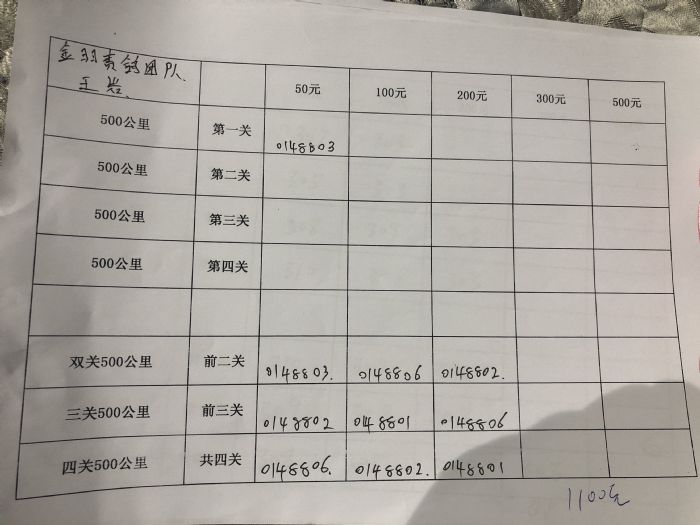 金羽赛鸽团队
王岩
50元 100元 200元 300元 500元
500公里 第一关 0148803
500公里 第二关
500公里 第三关
500公里 第四关
双关500公里 前二关 0148803. 0148806 0148802.
三关500公里 前三关 0148802 0148801 0148806
四关500公里 共四关 0148806. 0148802. 0148801
1100元